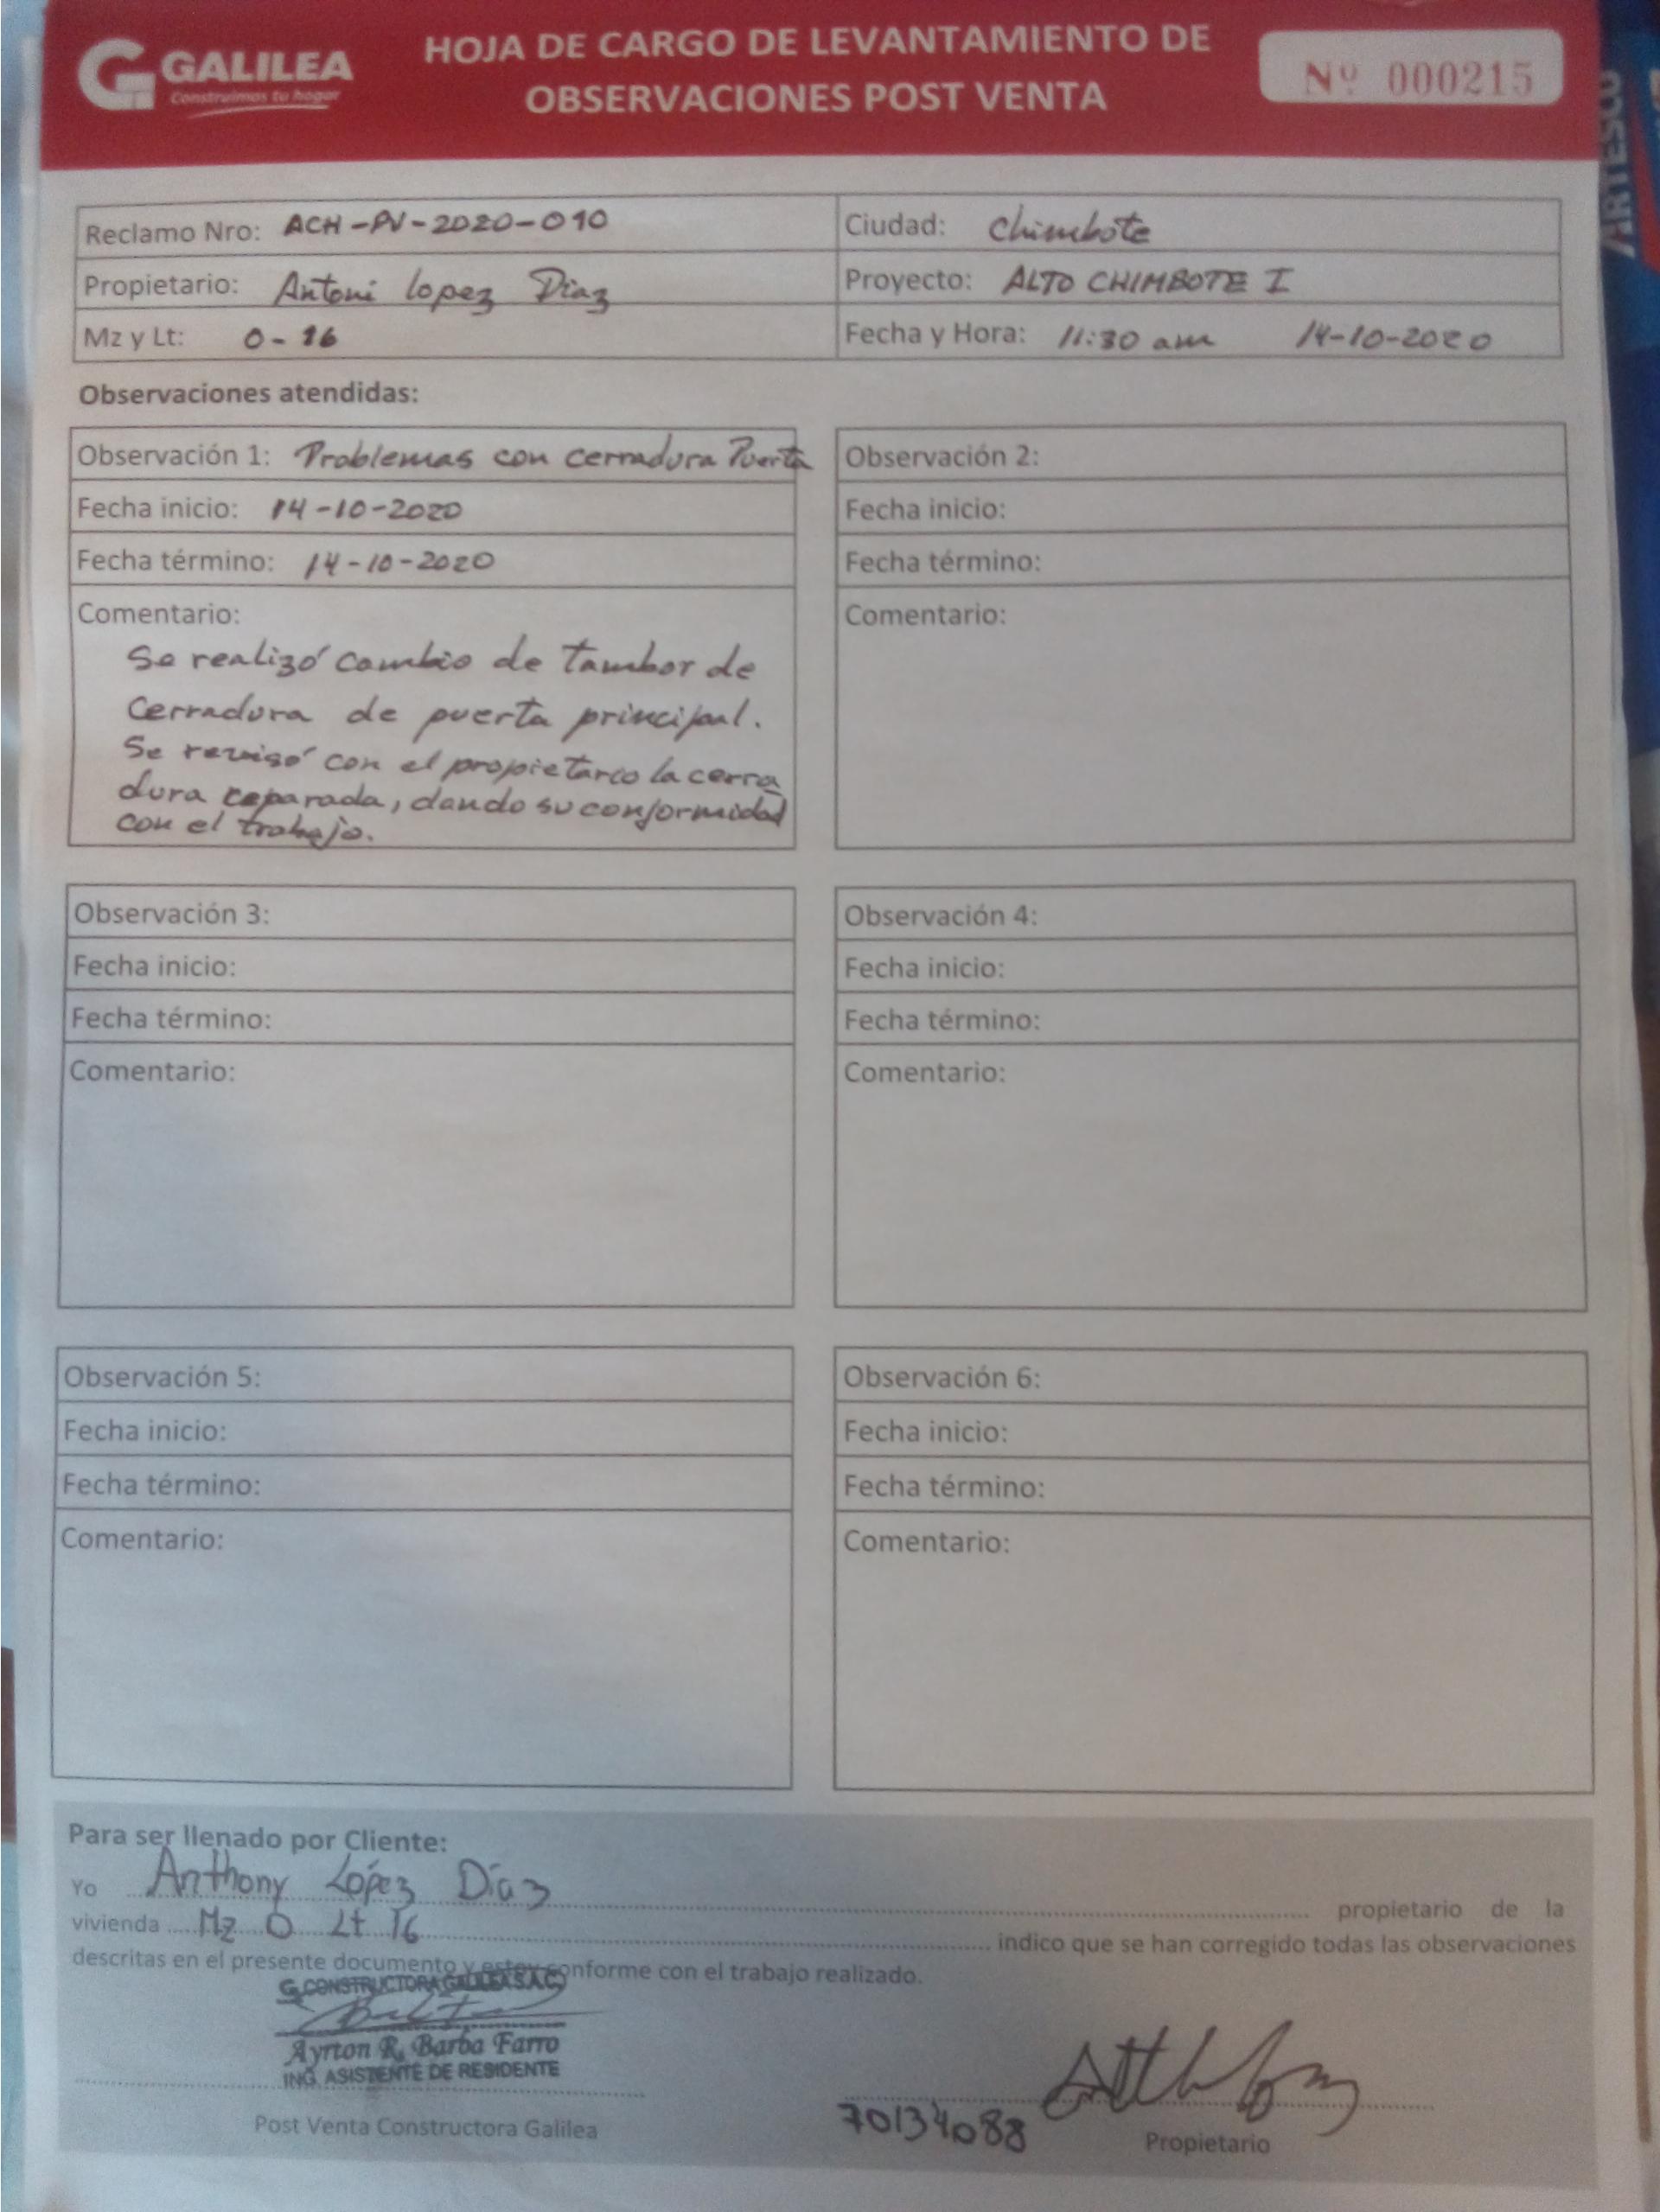 GALILEA
Construimos tu hogar
HOJA DE CARGO DE LEVANTAMIENTO DE
OBSERVACIONES POST VENTA
Nº 000215
ARTESCO
Reclamo Nro: ACH-PV-2020-010
Ciudad: Chimbote
Propietario: Antoni lopez Diaz
Proyecto: ALTO CHIMBOTE I
Mz y Lt: O-16
Fecha y Hora: 11:30 am 14-10-2020
Observaciones atendidas:
Observación 1: Problemas con cerradura Puerta
Fecha inicio: 14-10-2020
Fecha término: 14-10-2020
Comentario:
Se realizó cambio de tambor de
cerradura de puerta principal.
Se revisó con el propietario la cerra
dura reparada, dando su conformidad
con el trabajo.
Observación 2:
Fecha inicio:
Fecha término:
Comentario:
Observación 3:
Fecha inicio:
Fecha término:
Comentario:
Observación 4:
Fecha inicio:
Fecha término:
Comentario:
Observación 5:
Fecha inicio:
Fecha término:
Comentario:
Observación 6:
Fecha inicio:
Fecha término:
Comentario:
Para ser llenado por Cliente:
Yo Anthony López Díaz propietario de la
vivienda Mz O Lt 16 indico que se han corregido todas las observaciones
descritas en el presente documento y estoy conforme con el trabajo realizado.
G CONSTRUCTORA GALILEA S.A.C
Ayrton R. Barba Farro
ING. ASISTENTE DE RESIDENTE
Post Venta Constructora Galilea
70134088
Propietario